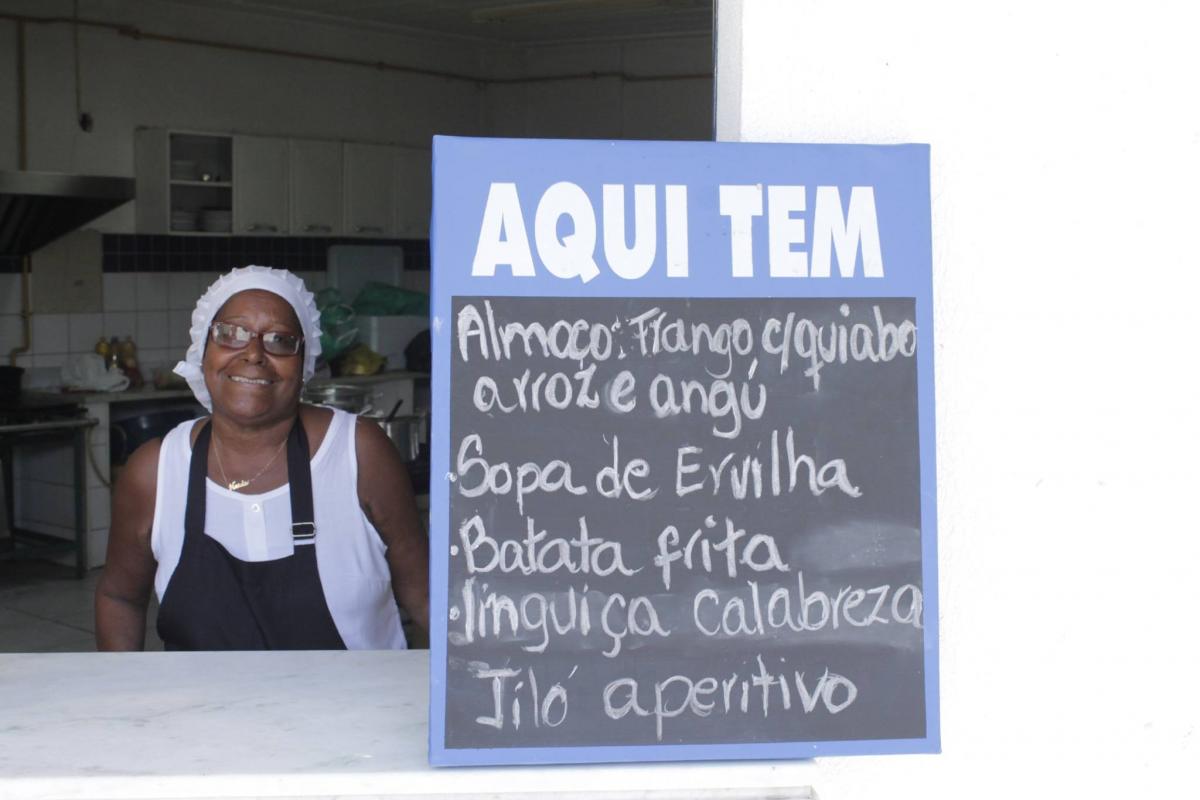 AQUI TEM
Almoço: Frango c/quiabo
arroz e angú
·Sopa de Ervilha
·Batata frita
·linguiça calabreza
Jiló aperitivo